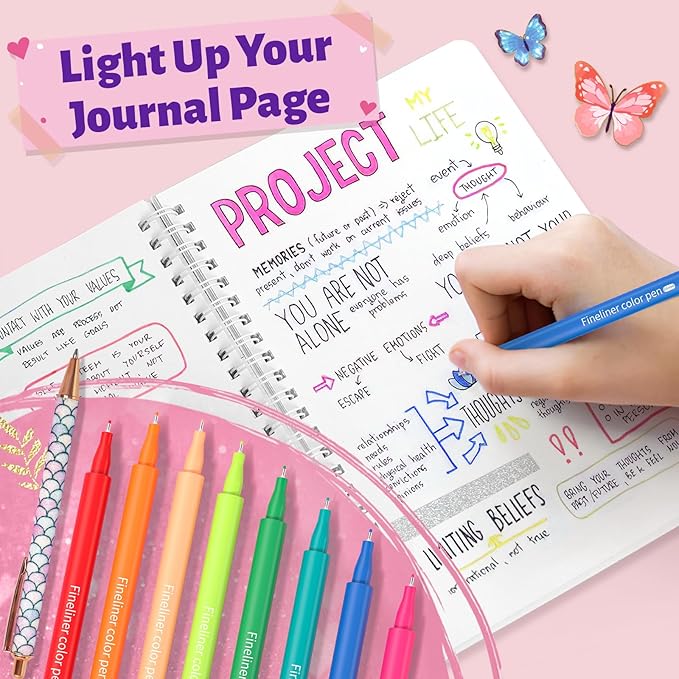 Light Up Your
Journal Page
PROJECT
MY
LIFE
event
THOUGHT
emotion
behaviour
MEMORIES (future or past) => reject
present, don't work on current issues
deep beliefs
YOU ARE NOT
ALONE
everyone has
problems
NOT YOUR
NEGATIVE EMOTIONS
ESCAPE
FIGHT
relationships
rules
physical health
THOUGHTS
LIMITING BELIEFS
not true
BRING YOUR THOUGHTS FROM
PAST/FUTURE,
CONTACT WITH YOUR VALUES
VALUES ARE PROCESS NOT
RESULT LIKE GOALS
IS YOUR
YOURSELF
NOT
!!
Fineliner color pen
Fineliner color pen
Fineliner color pen
Fineliner color pen
Fineliner color
Fineliner color
Fineliner color
Fineliner color
Fineliner col